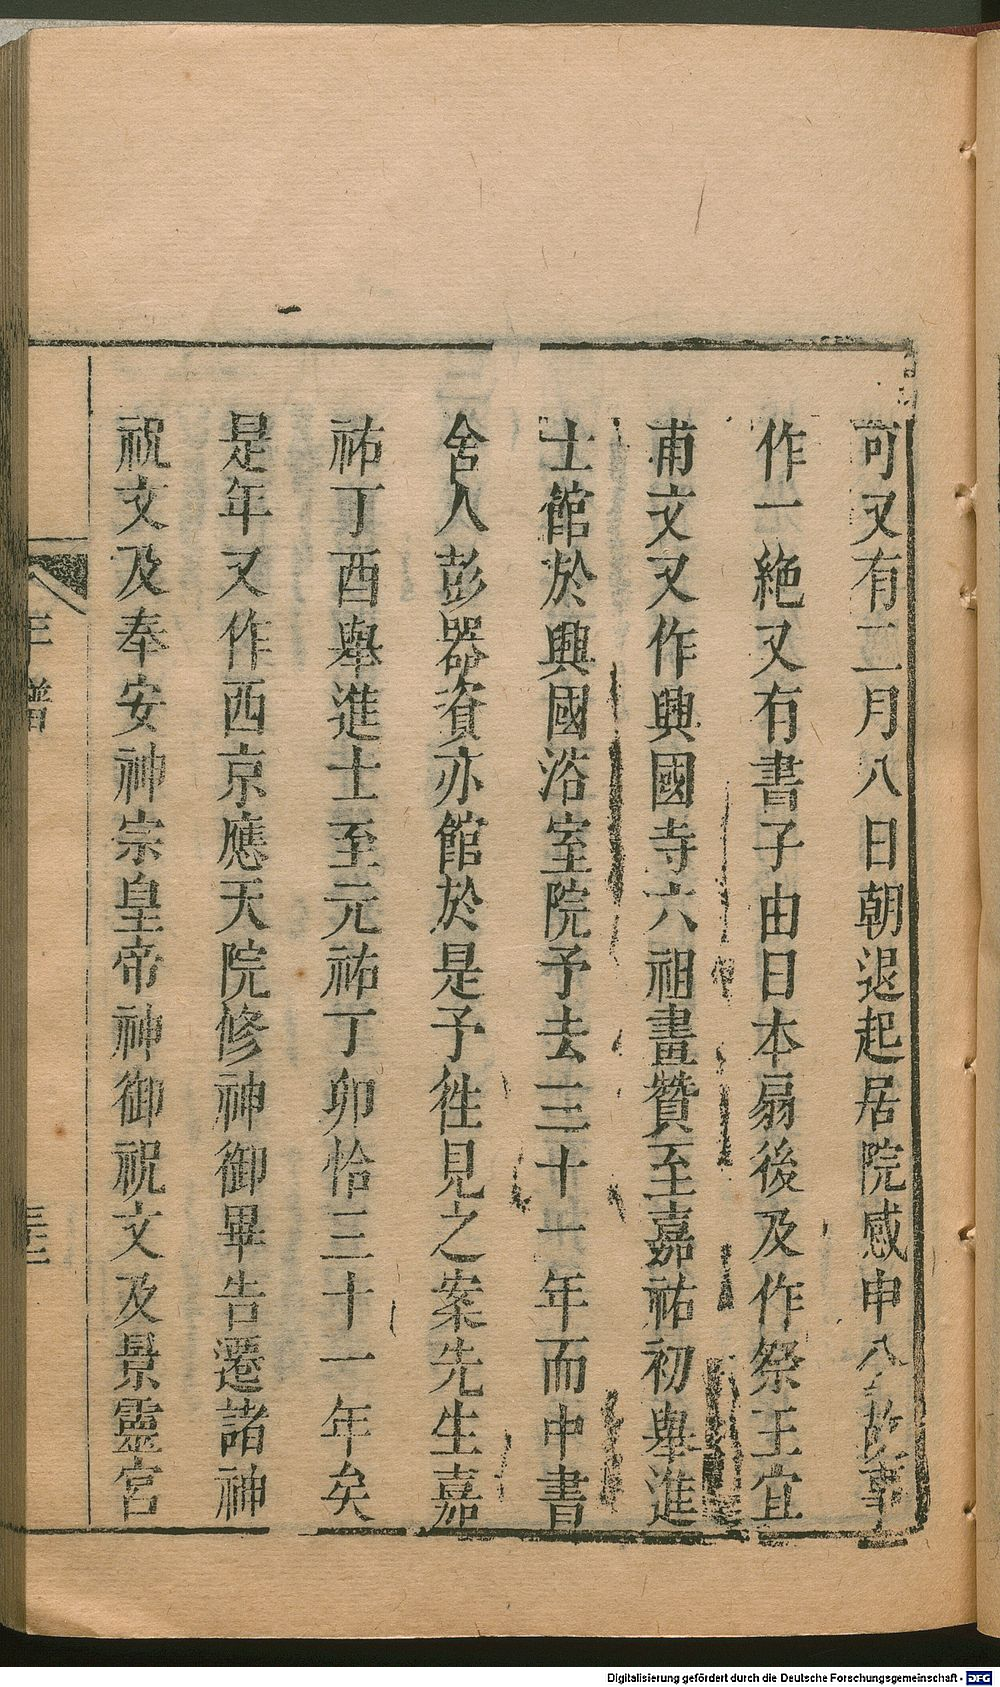 可又有二月八日朝退起居院感申公故事
作一絶又有書子由日本扇後及作祭王宜
甫文又作興國寺六祖畫贊至嘉祐初舉進
士館於興國浴室院予去三十一年而中書
舍人彭器資亦館於是予徃見之案先生嘉
祐丁酉舉進士至元祐丁卯恰三十一年矣
是年又作西京應天院修神御畢告遷諸神
祝文及奉安神宗皇帝神御祝文及景靈宮
年譜
Digitalisierung gefördert durch die Deutsche Forschungsgemeinschaft - DFG